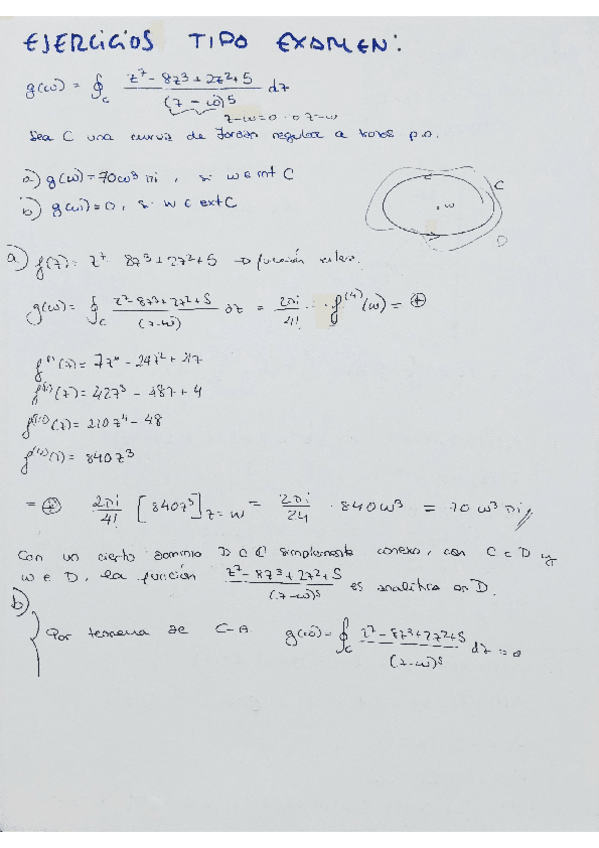 EJERCICIOS TIPO EXAMEN:
g(w) = ∮_C (z⁷ - 8z³ + 2z² + 5)/(z - w)⁵ dz
z-w=0 z=w
Sea C una curva de Jordan regular a trozos p.o.
a) g(w) = 70w³πi, si w ∈ int C
b) g(w) = 0, si w ∈ ext C
C
w
D
a) f(z) = z⁷ 8z³ + 2z² + 5 → función entera.
g(w) = ∮_C (z⁷ - 8z³ + 2z² + 5)/(z-w)⁵ dz = 2πi/4! · f⁽⁴⁾(w) = ⊕
f⁽ⁱ⁾(z) = 7z⁶ - 24z² + 4z
(z) = 42z⁵ - 48z + 4
(z) = 210z⁴ - 48
(z) = 840z³
= ⊕ 2πi/4! [840z³]_{z=w} = 2πi/24 · 840w³ = 70 w³ πi //
Con un cierto dominio D ⊂ ℂ simplemente conexo, con C ⊂ D y
w ∈ D, la función (z⁷ - 8z³ + 2z² + 5)/(z-w)⁵ es analítica en D.
b)
Por teorema de C-A g(w) = ∮_C (z⁷ - 8z³ + 2z² + 5)/(z-w)⁵ dz = 0